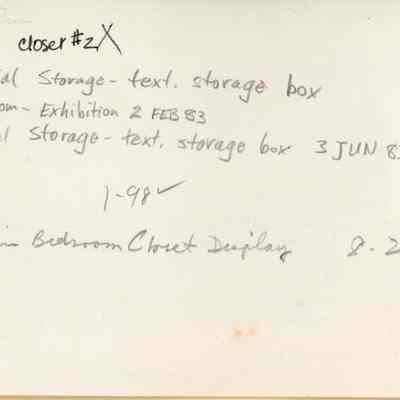 closer #2 X
ial Storage - text. storage box
om - Exhibition 2 FEB 83
l Storage - text. storage box 3 JUN 8
1-98 ✓
in Bedroom Closet Display 8.2